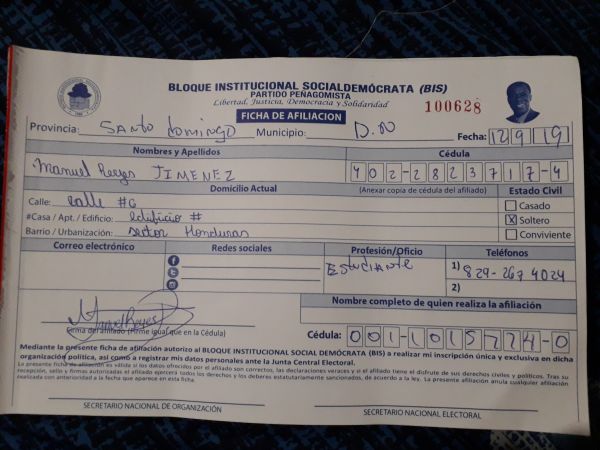 BLOQUE INSTITUCIONAL SOCIALDEMÓCRATA (BIS)
PARTIDO PEÑAGOMISTA
Libertad, Justicia, Democracia y Solidaridad
FICHA DE AFILIACION
100628
Provincia: Santo Domingo Municipio: D.N Fecha: 12 9 19
Nombres y Apellidos Cédula
Manuel Reyes JIMENEZ 402-2823717-4
Domicilio Actual (Anexar copia de cédula del afiliado) Estado Civil
Calle: calle #6 Casado
#Casa / Apt. / Edificio: edificio # X Soltero
Barrio / Urbanización: sector Honduras Conviviente
Correo electrónico Redes sociales Profesión/Oficio Teléfonos
ESTUdiANTE 1) 829-267 4024
2)
Nombre completo de quien realiza la afiliación
Manuel Reyes
Firma del afiliado (Firme igual que en la Cédula) Cédula: 001-1015774-0
Mediante la presente ficha de afiliación autorizo al BLOQUE INSTITUCIONAL SOCIAL DEMÓCRATA (BIS) a realizar mi inscripción única y exclusiva en dicha
organización política, así como a registrar mis datos personales ante la Junta Central Electoral.
La presente ficha de afiliación es válida si los datos ofrecidos por el afiliado son correctos, las declaraciones veraces y si el afiliado tiene el disfrute de sus derechos civiles y políticos. Tras su
recepción, sello y firmas autorizadas el afiliado ejercerá todos los derechos y los deberes estatutariamente sancionados, de acuerdo a la ley. La presente afiliación anula cualquier afiliación
realizada con anterioridad a la fecha que aparece en esta ficha.
SECRETARIO NACIONAL DE ORGANIZACIÓN SECRETARIO NACIONAL ELECTORAL